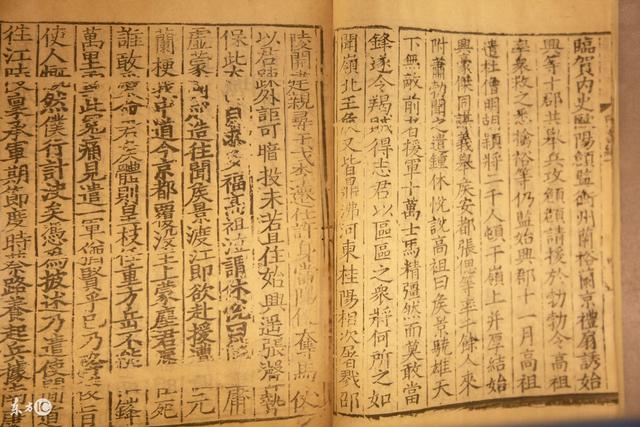 臨賀内史歐陽頠監衡州蘭裕蘭京禮扇誘始
興等十郡共舉兵攻頠頠請援於勃勃令高祖
率衆救之悉擒裕等仍監始興郡十一月高祖
遣杜僧明胡穎將二千人頓于嶺上并厚結始
興豪傑同謀義舉侯安都張偲等率千餘人來
附蕭勃聞之遣鍾休悅說高祖曰侯景驍雄天
下無敵前者援軍十萬士馬精彊然而莫敢當
鋒遂令羯賊得志君以區區之衆將何所之如
聞嶺北王侯又皆鼎沸河東桂陽相次屠戮邵
陵開建親尋干戈李遷仕許身當陽便奪馬仗
以君踈外詎可暗投未若且住始興遥張聲勢
保此太山自求多福高祖泣謂休悅曰庸
虛蒙國成造往聞侯景渡江即欲赴援遭元
蘭梗我中道今京都覆沒主上蒙塵君辱死
誰敢愛命君侯體則皇枝任重方岳不能鋒
萬里雪此冤痛見遣一軍猶賢乎已乃後旨
使人慨然僕行計決矣憑為披述乃遣使間道
往江陵稟承軍期節度時蔡路養起兵據南康
东方IC